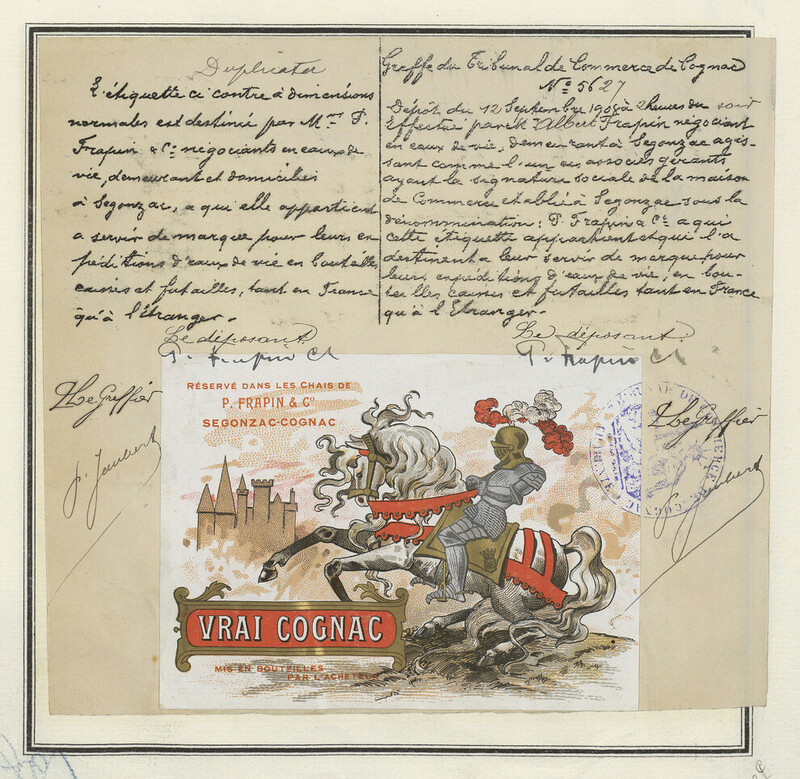 Duplicata
L'étiquette ci contre à dimensions
normales est destinée par M.rs P.
Frapin & Cie négociants en eaux de
vie, demeurant et domiciliés
à Segonzac, a qui elle appartient
a servir de marque pour leurs ex
péditions d'eaux de vie en bouteilles
caisses et futailles, tant en France
qu'à l'étranger.
Le déposant.
P. Frapin Cie
Le Greffier
J. Jaubert
Greffe du Tribunal de Commerce de Cognac
No 5627
Dépôt du 12 Septembre à 2 heures du soir
Effectué par Mr Albert Frapin négociant
en eaux de vie, demeurant à Segonzac agis-
sant comme l'un des associés gérants
ayant la signature sociale de la maison
de Commerce établie à Segonzac sous la
dénommination: P. Frapin & Co a qui
cette étiquette appartient et qui l'a
destinent a leur servir de marque pour
leurs expéditions d'eaux de vie, en bou-
teilles caisses et futailles tant en France
qu'à l'Etranger.
Le déposant.
P. Frapin Cie
Le Greffier
J. Jaubert
RÉSERVÉ DANS LES CHAIS DE
P. FRAPIN & Co
SEGONZAC-COGNAC
VRAI COGNAC
MIS EN BOUTEILLES
PAR L'ACHETEUR